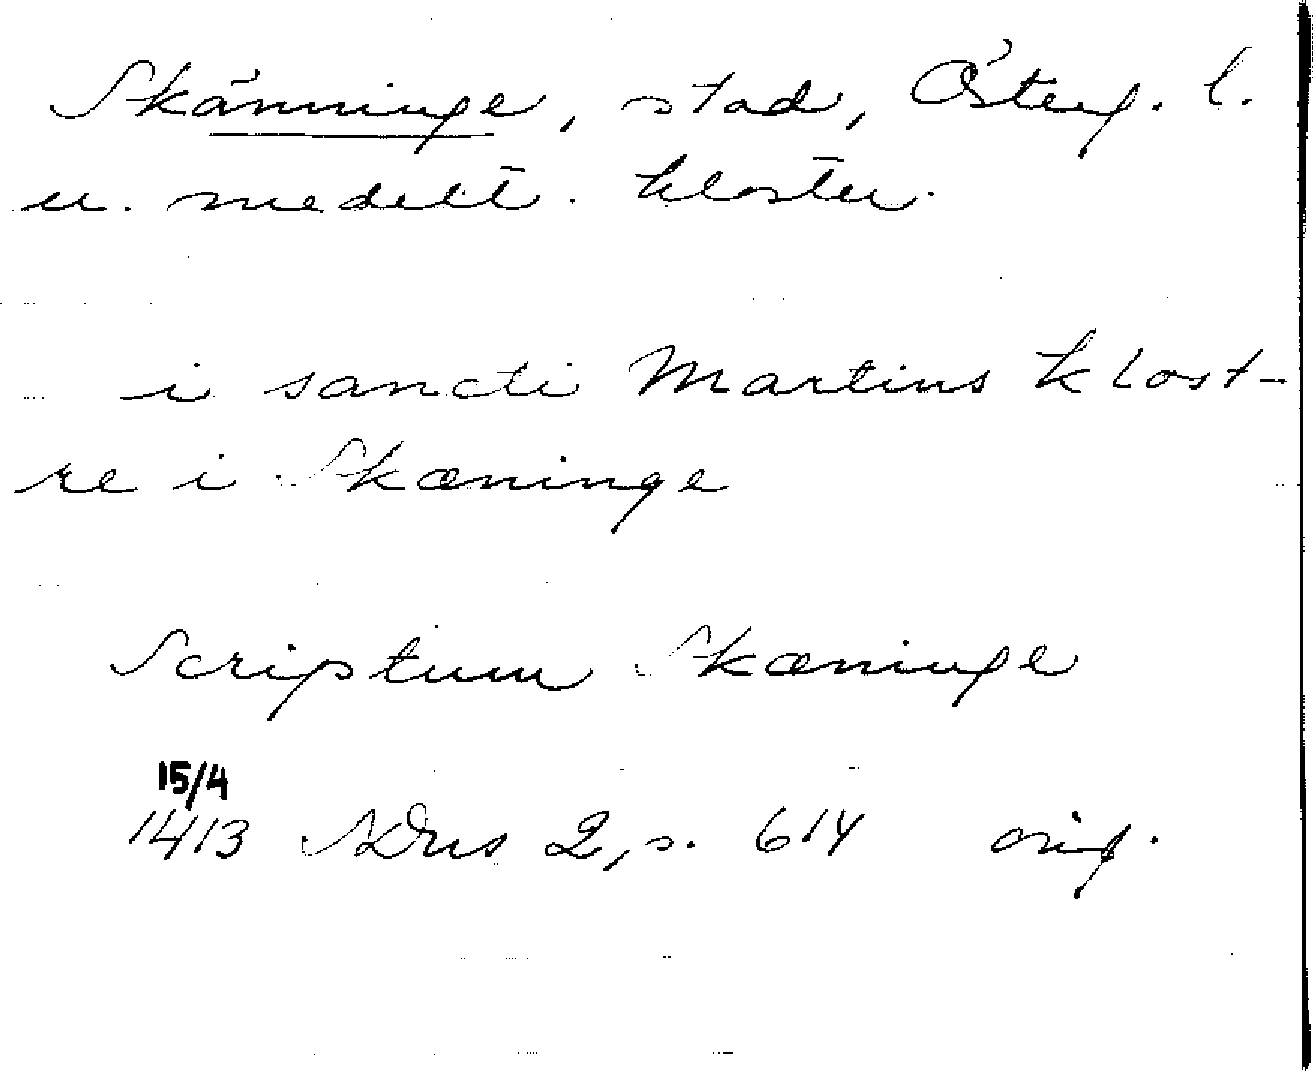 Skänninge, stad, Österg. l.
u. medelt. kloster.
i sancti Martins klost-
re i Skæninge
Scriptum Skæninge
15/4
1413 SDns 2, s. 614 orig.